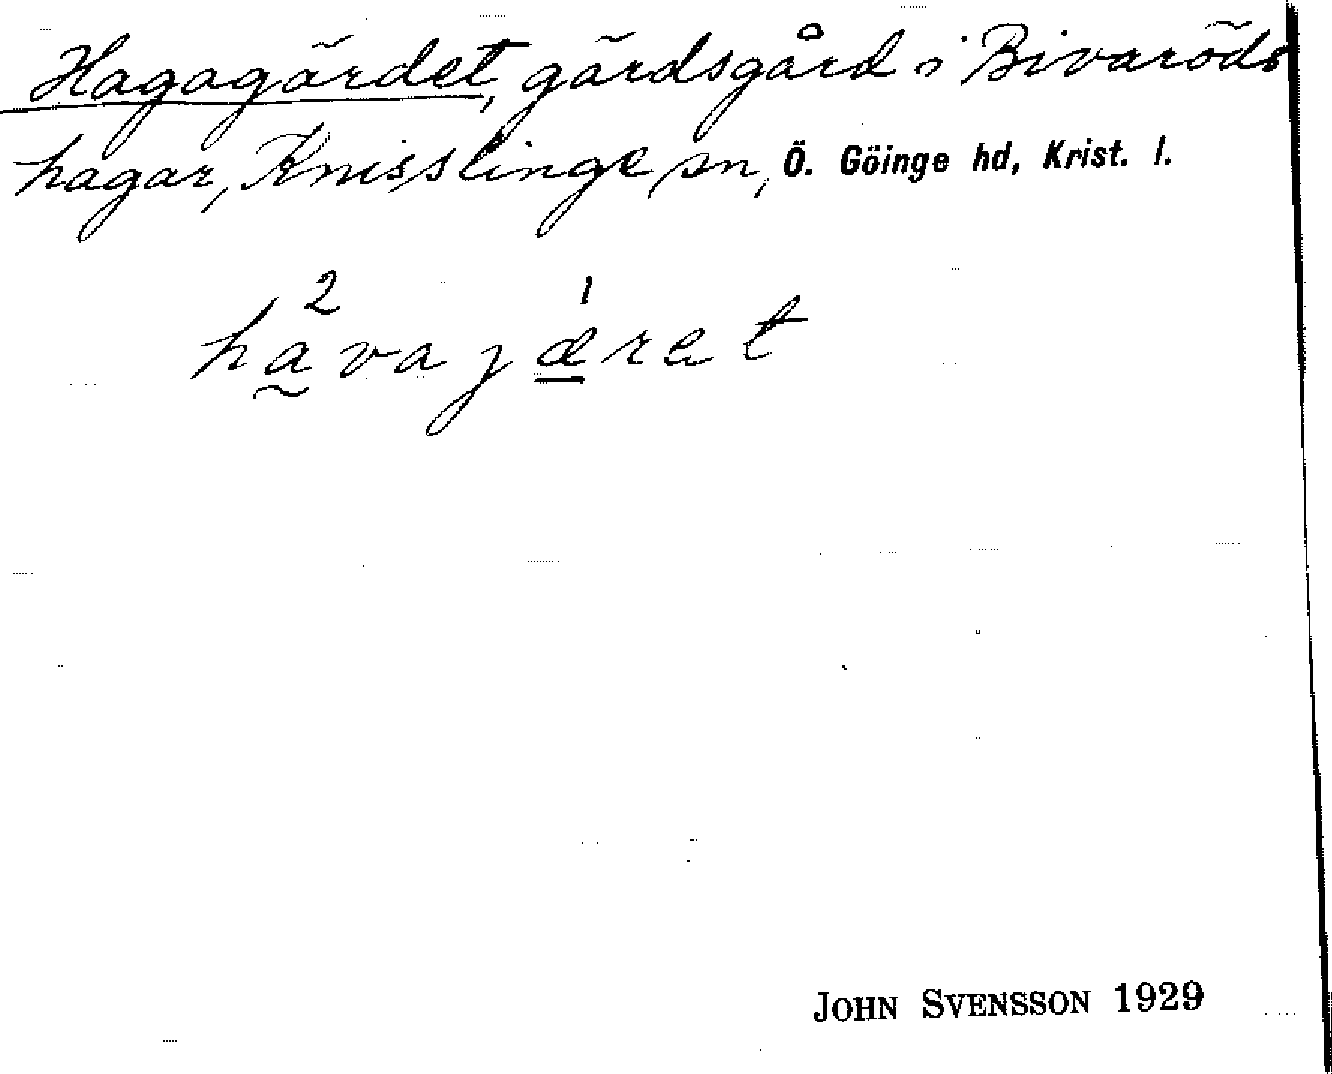 Hagagärdet, gärdsgård i Bivaröds
hagar, Knisslinge sn, Ö. Göinge hd, Krist. l.
2 1
hava jæret
JOHN SVENSSON 1929